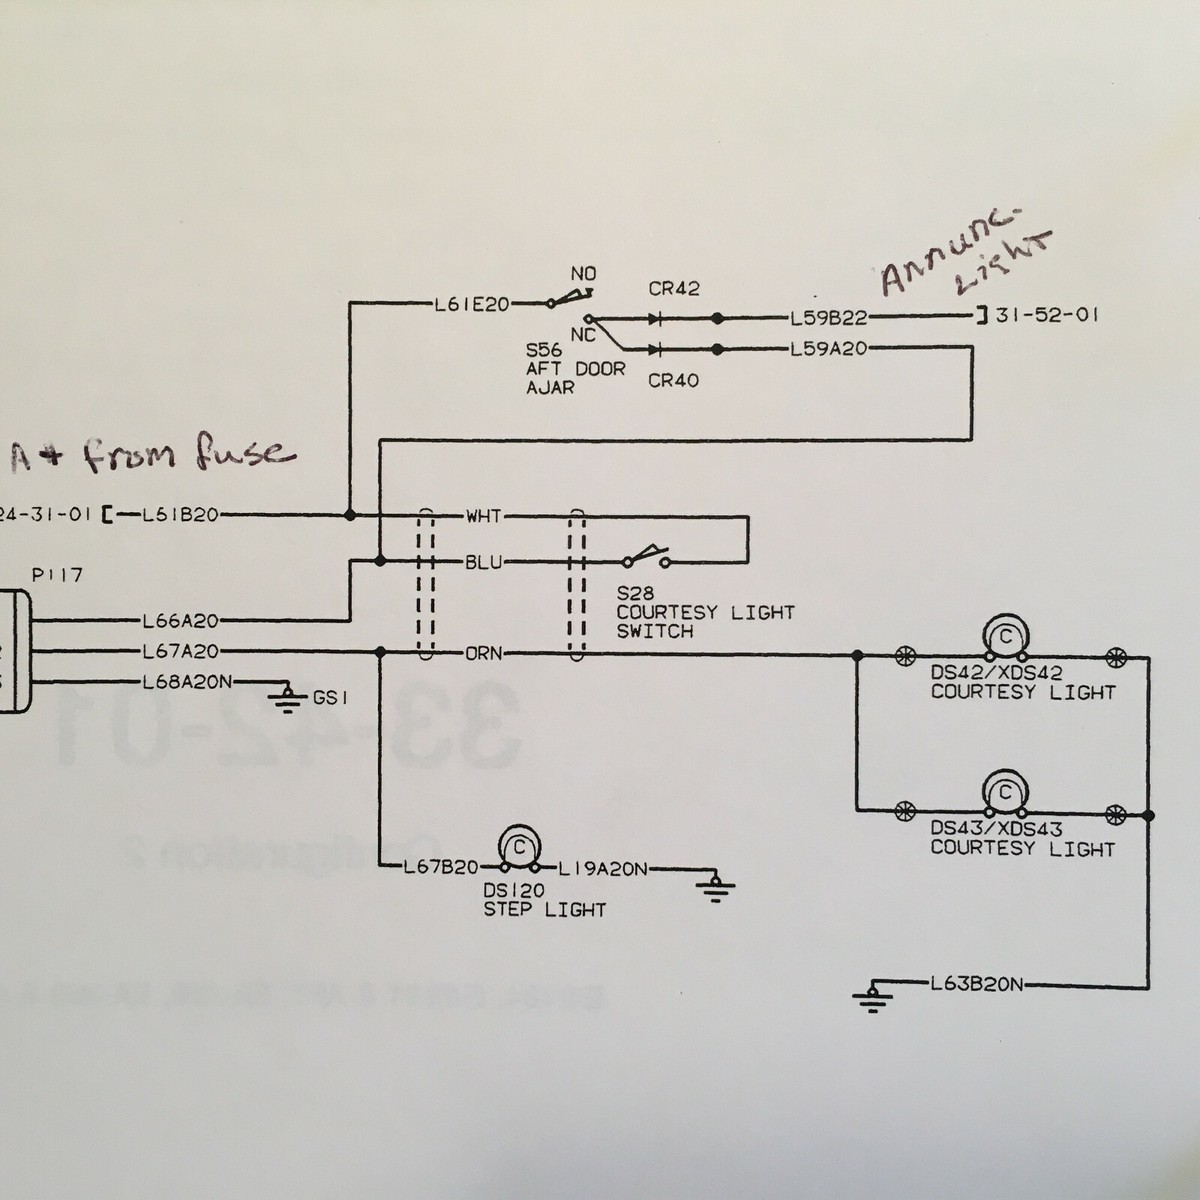 Annunc-
Light
NO
L61E20
CR42
L59B22
31-52-01
NC
S56
AFT DOOR
AJAR
L59A20
CR40
A+ from fuse
24-31-01
L61B20
WHT
BLU
P117
S28
COURTESY LIGHT
SWITCH
L66A20
L67A20
ORN
C
DS42/XDS42
COURTESY LIGHT
L68A20N
GS1
33-42-01
C
DS43/XDS43
COURTESY LIGHT
Configuration 2
C
L67B20
L19A20N
DS120
STEP LIGHT
L63B20N